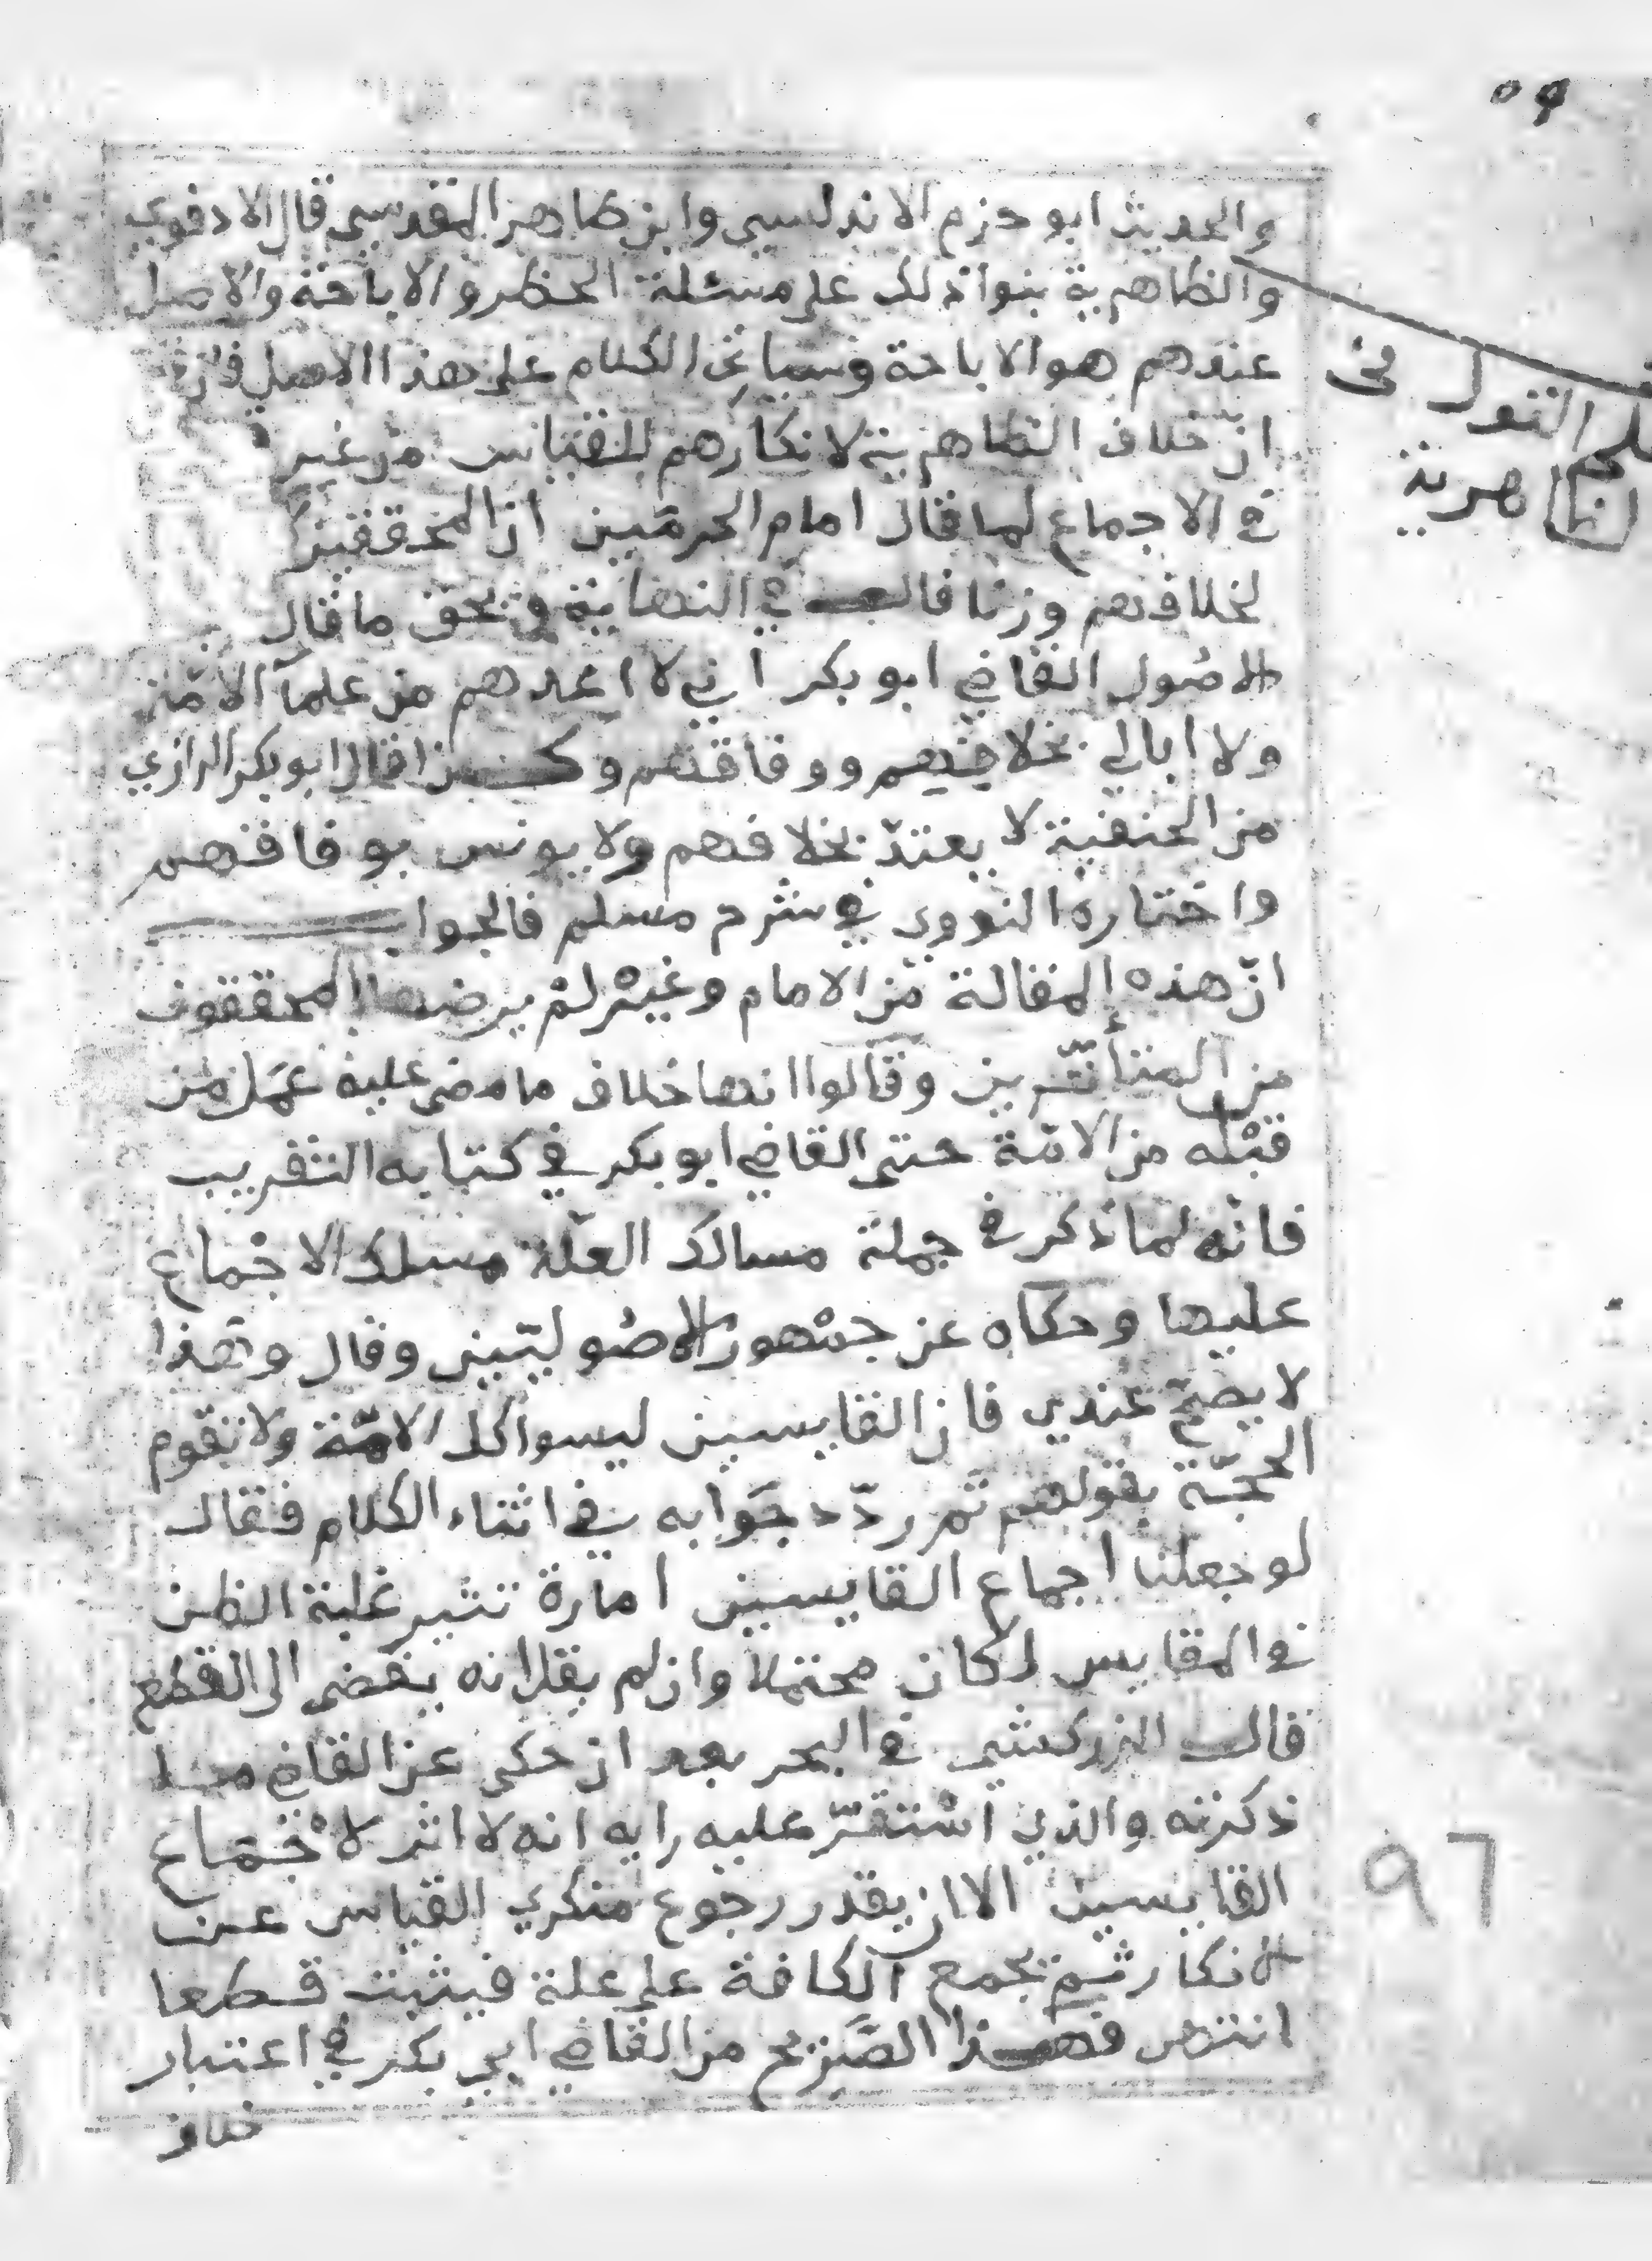 والحديث ابو حزم الاندلسي وابن طاهر المقدسي قال الادفوي
والظاهرية بنوا ذلك على مسئلة الحظر والاباحة والاصل
عندهم هو الاباحة وسياتي الكلام على هذا الاصل
ان خلاف الظاهرية لانكارهم للقياس من غير
في الاجماع لما قال امام الحرمين ان المحققين
لخلافهم وزنا قال في النهاية في بحق ما قال
الاصُول القاضي ابو بكر اني لا اعدهم من علمآ الامّة
ولا ابالي بخلافهم ووفاقهم وكذا قال ابو بكر الرازي
من الحنفية لا يعتدّ بخلافهم ولا يونس بوفاقهم
واختاره النووي في شرح مسلم فالجواب
انّ هذه المقالة من الامام وغيْر لمْ يرضها المحققون
من المتأخّرين وقالوا انها خلاف ما مضى عليه عمَل من
قبْله من الامّة حتى القاضي ابو بكر في كتابه التقريب
فانّه لما ذكر في جملة مسالك العلّة مسلك الاجْماع
عليها وحكاه عن جمْهور الاصُوليّين وقال وهذا
لا يصحّ عندي فان القايسين ليسوا كل الامّة ولا تقوم
الحجّة بقولهم ثم ردّد جَوابه في اثناء الكلام فقال
لو جعلنا اجماع القايسين امارة تثير غلبة الظن
في المقايس لكان محتملا وان لم يقل انه يفضى الى القطع
قال الزركشي في البحر بعد ان حكى عن القاضي ما
ذكرته والذي اسْتقرّ عليه رايه انه لا اثر لاجْماع
القايسين الا ان يقدر رجوع منكري القياس عن
الانكار ثم يجمع الكافة على علة فيثبت قطعا
انتهى فهذا الصَّريح من القاضي ابي بكر في اعتبار
خلاف
القول فى
الظاهرية
٩٦